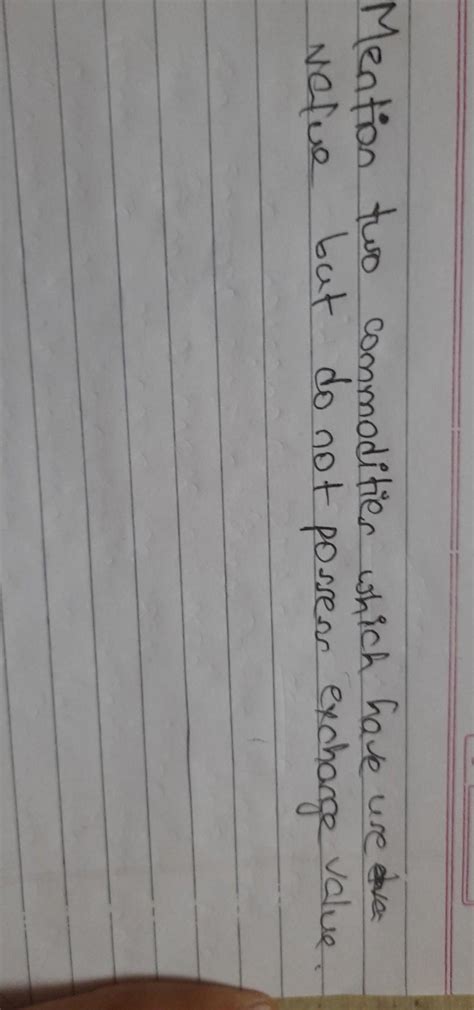 Mention two commodities which have use
value but do not possess exchange value.